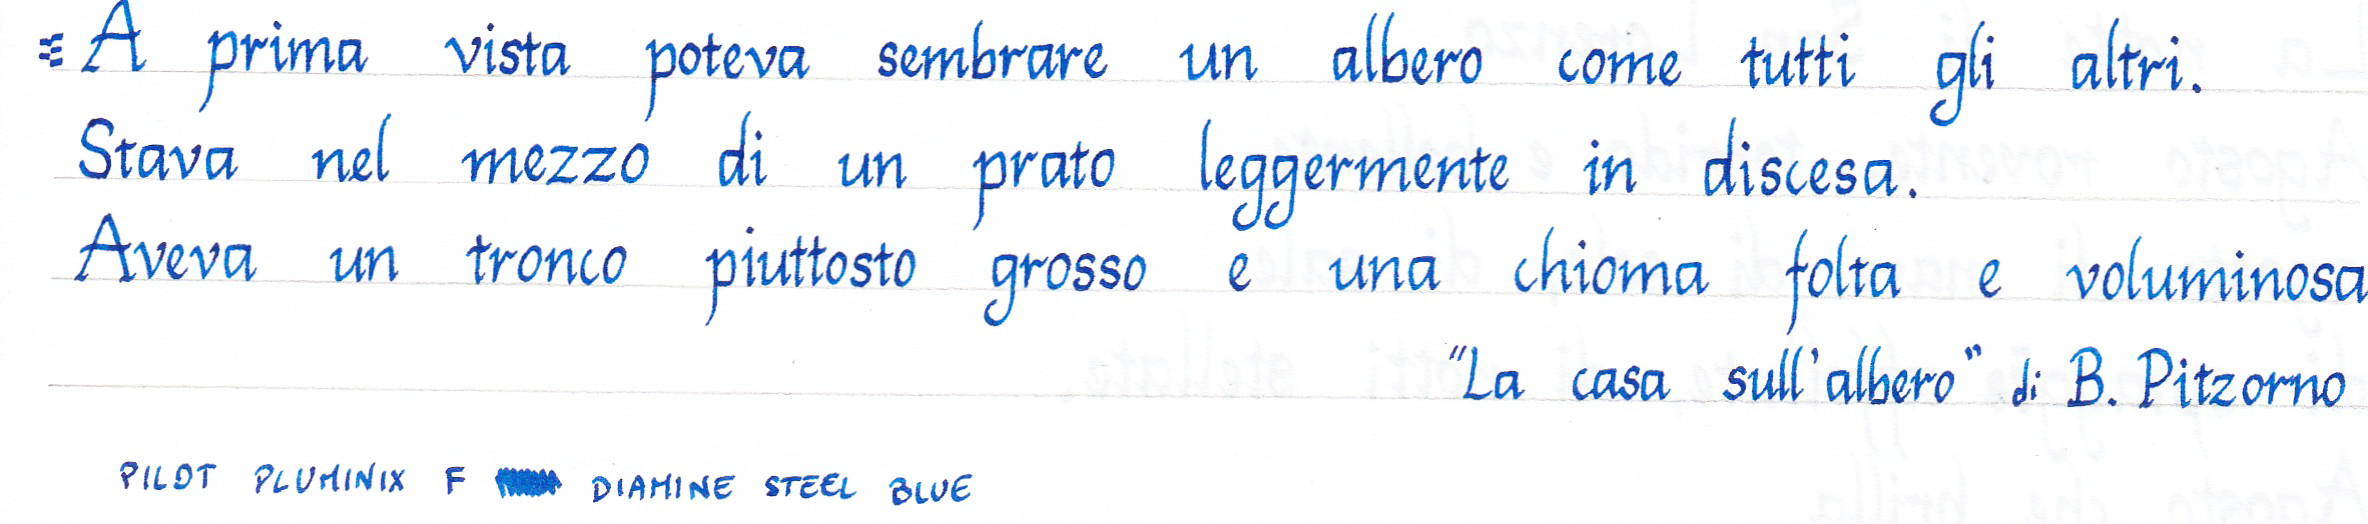 A prima vista poteva sembrare un albero come tutti gli altri.
Stava nel mezzo di un prato leggermente in discesa.
Aveva un tronco piuttosto grosso e una chioma folta e voluminosa
"La casa sull'albero" di B. Pitzorno
PILOT PLUMINIX F DIAMINE STEEL BLUE